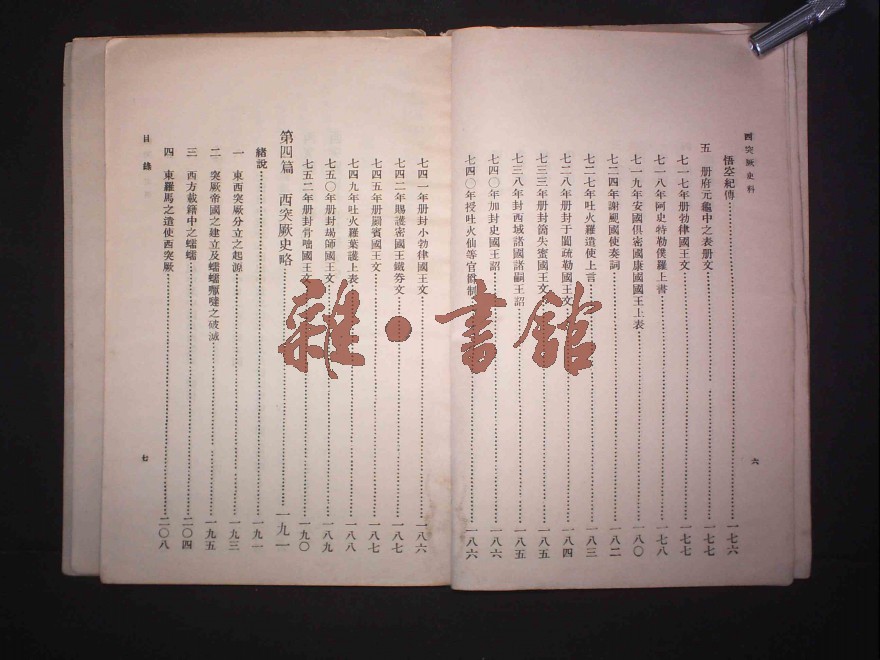 西突厥史料
六
悟空紀傳 一七六
五 册府元龜中之表册文 一七七
七一七年册勃律國王文 一七七
七一八年阿史特勒僕羅上書 一七八
七一九年安國俱密國康國國王上表 一八〇
七二四年謝䫻國使奏詞 一八二
七二七年吐火羅遣使上言 一八三
七二八年册封于闐疏勒國王文 一八四
七三三年册封箇失蜜國王文 一八五
七三八年封西域諸國諸嗣王詔 一八五
七四〇年加封史國王詔 一八六
七四〇年授吐火仙等官爵制 一八六
七四一年册封小勃律國王文 一八六
七四二年賜護密國王鐵券文 一八七
七四五年册罽賓國王文 一八七
七四九年吐火羅葉護上表 一八八
七五〇年册封朅師國王文 一八九
七五二年册封骨咄國王文 一九〇
第四篇 西突厥史略 一九一
緒說 一九一
一 東西突厥分立之起源 一九三
二 突厥帝國之建立及蠕蠕嚈噠之破滅 一九五
三 西方載籍中之蠕蠕 二〇四
四 東羅馬之遣使西突厥 二〇八
目錄
七
雜·書館